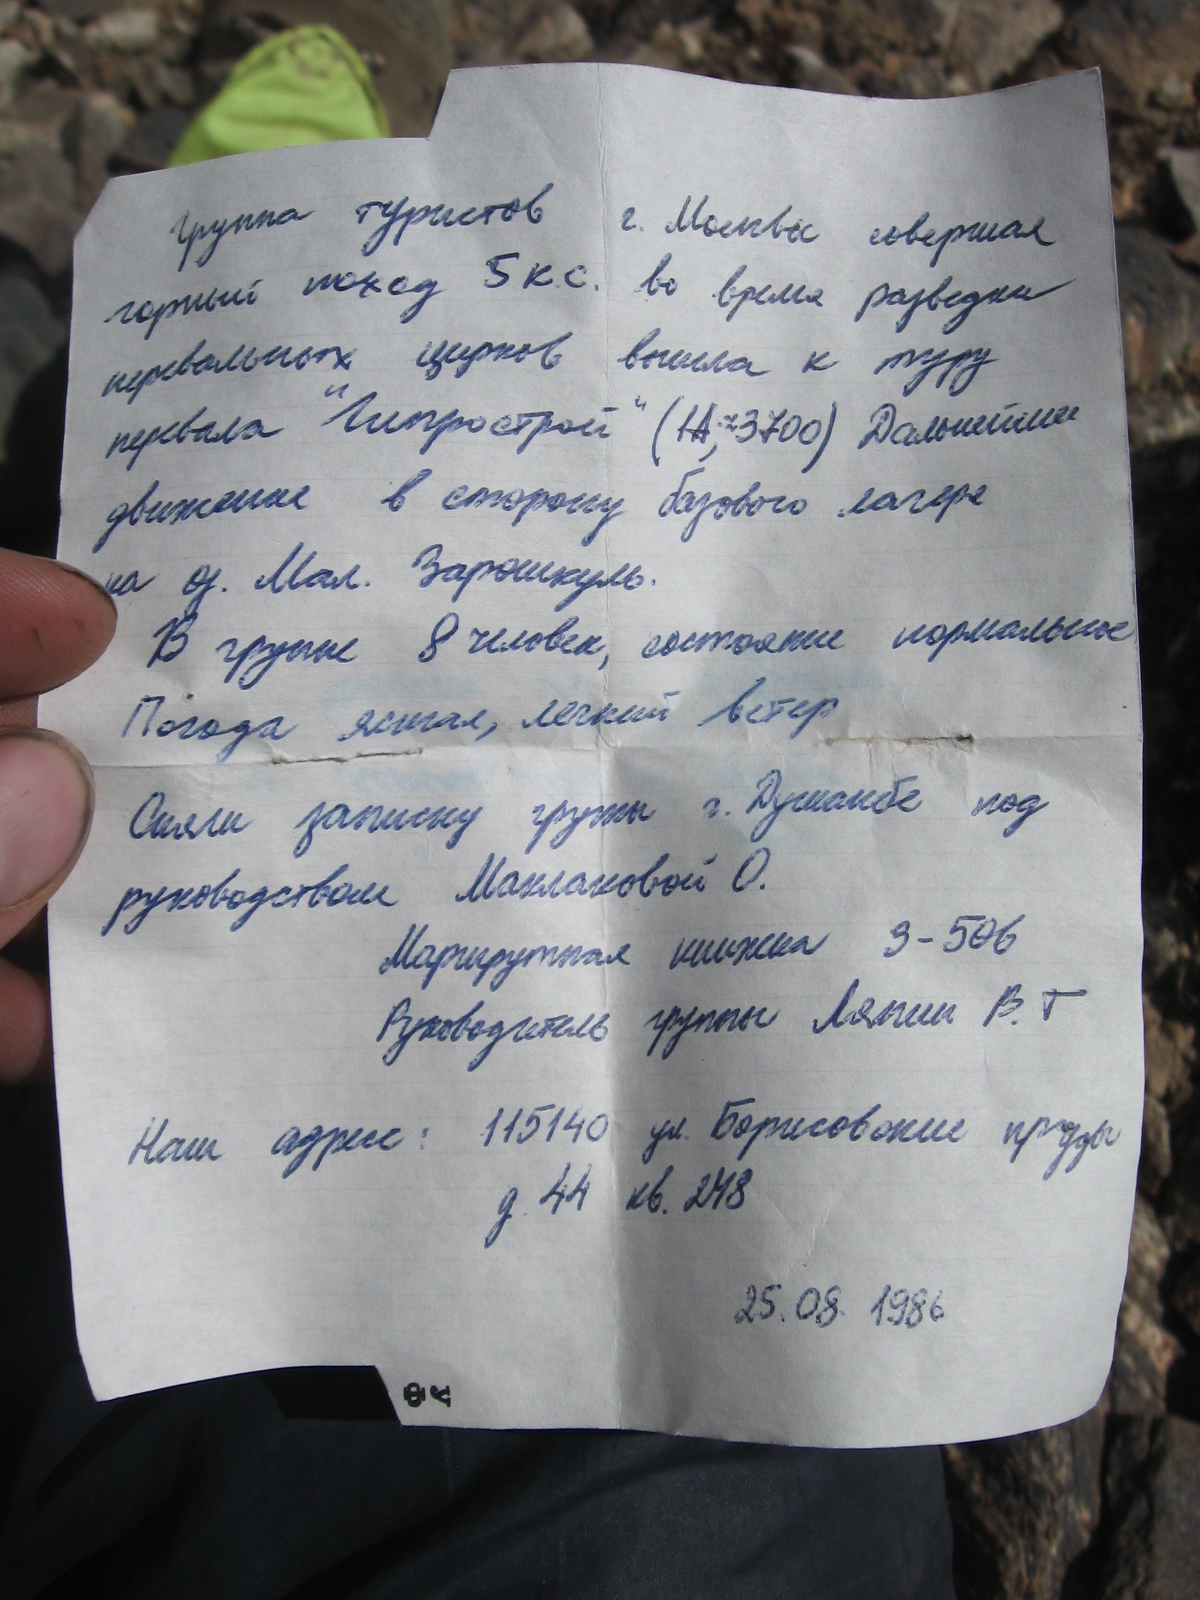 Группа туристов г. Москвы совершая
горный поход 5 к.с. во время разведки
перевальных цирков вышла к туру
перевала "Гипрострой" (1А, ~3700) Дальнейшее
движение в сторону базового лагеря
на оз. Мал. Зарошкуль.
В группе 8 человек, состояние нормальное
Погода ясная, легкий ветер
Сняли записку группы г. Душанбе под
руководством Маклаковой О.
Маршрутная книжка 9-506
Руководитель группы Ляпин В. Г
Наш адрес: 115140 ул. Борисовские пруды
д. 44 кв. 248
25.08. 1986